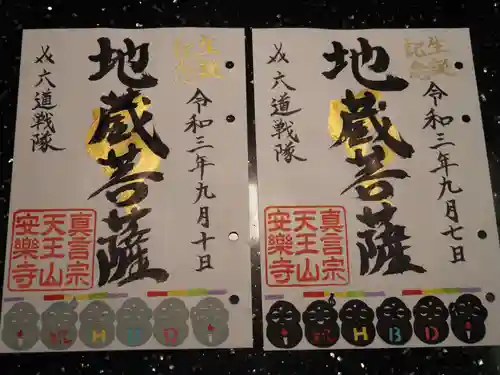 生誕
記念
令和三年九月十日
地蔵菩薩
六道戦隊
真言宗
天王山
安樂寺
祝HBD
生誕
記念
令和三年九月七日
地蔵菩薩
六道戦隊
真言宗
天王山
安樂寺
祝HBD